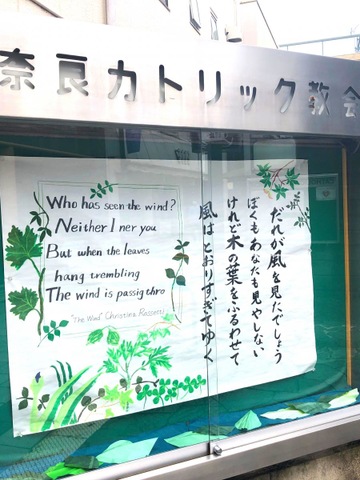 奈良カトリック教会
Who has seen the wind?
Neither I ner you
But when the leaves
hang trembling
The wind is passig thro
"The Wind" Christina Rossetti
だれが風を見たでしょう
ぼくもあなたも見やしない
けれど木の葉をふるわせて
風はとおりすぎてゆく